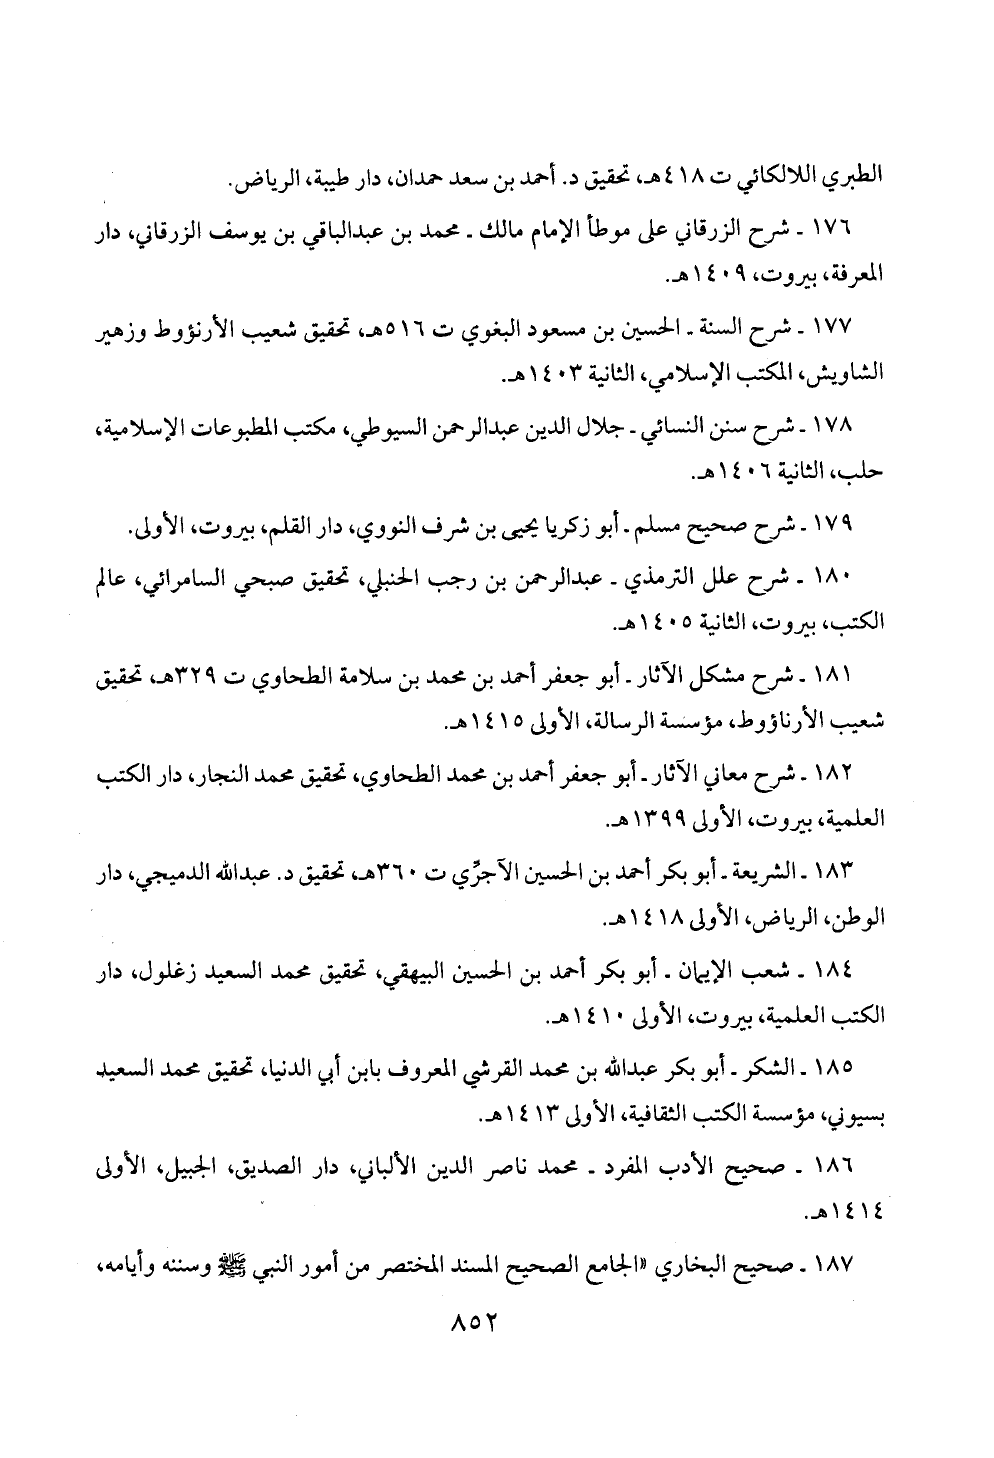 الطبري اللالكائي ت ٤١٨هـ، تحقيق د. أحمد بن سعد حمدان، دار طيبة، الرياض.
١٧٦ ـ شرح الزرقاني على موطأ الإمام مالك ـ محمد بن عبدالباقي بن يوسف الزرقاني، دار
المعرفة، بيروت، ١٤٠٩هـ.
١٧٧ ـ شرح السنة ـ الحسين بن مسعود البغوي ت ٥١٦هـ، تحقيق شعيب الأرنؤوط وزهير
الشاويش، المكتب الإسلامي، الثانية ١٤٠٣هـ.
١٧٨ ـ شرح سنن النسائي ـ جلال الدين عبدالرحمن السيوطي، مكتب المطبوعات الإسلامية،
حلب، الثانية ١٤٠٦هـ.
١٧٩ ـ شرح صحيح مسلم ـ أبو زكريا يحيى بن شرف النووي، دار القلم، بيروت، الأولى.
١٨٠ ـ شرح علل الترمذي ـ عبدالرحمن بن رجب الحنبلي، تحقيق صبحي السامرائي، عالم
الكتب، بيروت، الثانية ١٤٠٥هـ.
١٨١ ـ شرح مشكل الآثار ـ أبو جعفر أحمد بن محمد بن سلامة الطحاوي ت ٣٢٩هـ، تحقيق
شعيب الأرناؤوط، مؤسسة الرسالة، الأولى ١٤١٥هـ.
١٨٢ ـ شرح معاني الآثار ـ أبو جعفر أحمد بن محمد الطحاوي، تحقيق محمد النجار، دار الكتب
العلمية، بيروت، الأولى ١٣٩٩هـ.
١٨٣ ـ الشريعة ـ أبو بكر أحمد بن الحسين الآجرِّي ت ٣٦٠هـ، تحقيق د. عبدالله الدميجي، دار
الوطن، الرياض، الأولى ١٤١٨هـ.
١٨٤ ـ شعب الإيمان ـ أبو بكر أحمد بن الحسين البيهقي، تحقيق محمد السعيد زغلول، دار
الكتب العلمية، بيروت، الأولى ١٤١٠هـ.
١٨٥ ـ الشكر ـ أبو بكر عبدالله بن محمد القرشي المعروف بابن أبي الدنيا، تحقيق محمد السعيد
بسيوني، مؤسسة الكتب الثقافية، الأولى ١٤١٣هـ.
١٨٦ ـ صحيح الأدب المفرد ـ محمد ناصر الدين الألباني، دار الصديق، الجبيل، الأولى
١٤١٤هـ.
١٨٧ ـ صحيح البخاري «الجامع الصحيح المسند المختصر من أمور النبي ﷺ وسننه وأيامه،
٨٥٢